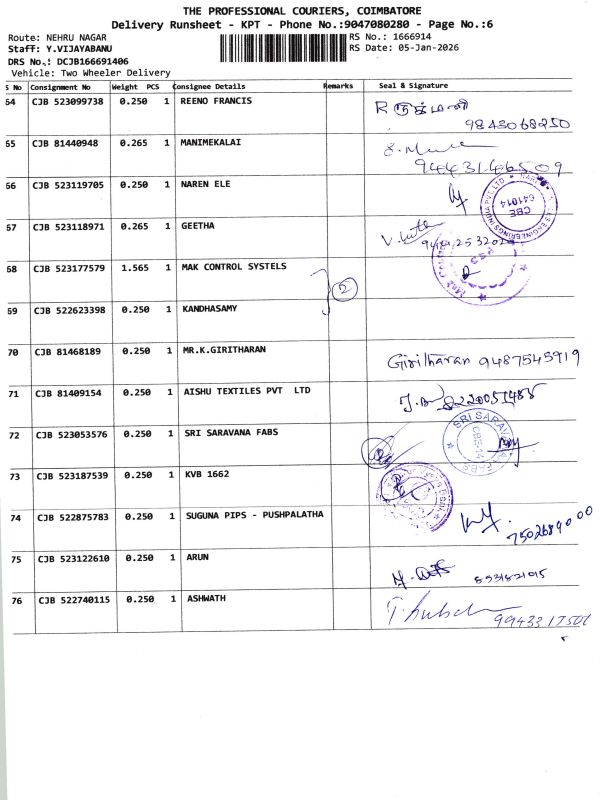 THE PROFESSIONAL COURIERS, COIMBATORE
Delivery Runsheet - KPT - Phone No.:9047080280 - Page No.:6
Route: NEHRU NAGAR RS No.: 1666914
Staff: Y.VIJAYABANU RS Date: 05-Jan-2026
DRS No.: DCJB166691406
Vehicle: Two Wheeler Delivery
S No Consignment No Weight PCS Consignee Details Remarks Seal & Signature
64 CJB 523099738 0.250 1 REENO FRANCIS
9843068250
65 CJB 81440948 0.265 1 MANIMEKALAI
9443146509
66 CJB 523119705 0.250 1 NAREN ELE
CBE 641014
67 CJB 523118971 0.265 1 GEETHA
68 CJB 523177579 1.565 1 MAK CONTROL SYSTELS
2
69 CJB 522623398 0.250 1 KANDHASAMY
70 CJB 81468189 0.250 1 MR.K.GIRITHARAN
Giritharan 9487545919
71 CJB 81409154 0.250 1 AISHU TEXTILES PVT LTD
72 CJB 523053576 0.250 1 SRI SARAVANA FABS
SRI SARAVANA FABS
73 CJB 523187539 0.250 1 KVB 1662
74 CJB 522875783 0.250 1 SUGUNA PIPS - PUSHPALATHA
75 CJB 523122610 0.250 1 ARUN
76 CJB 522740115 0.250 1 ASHWATH